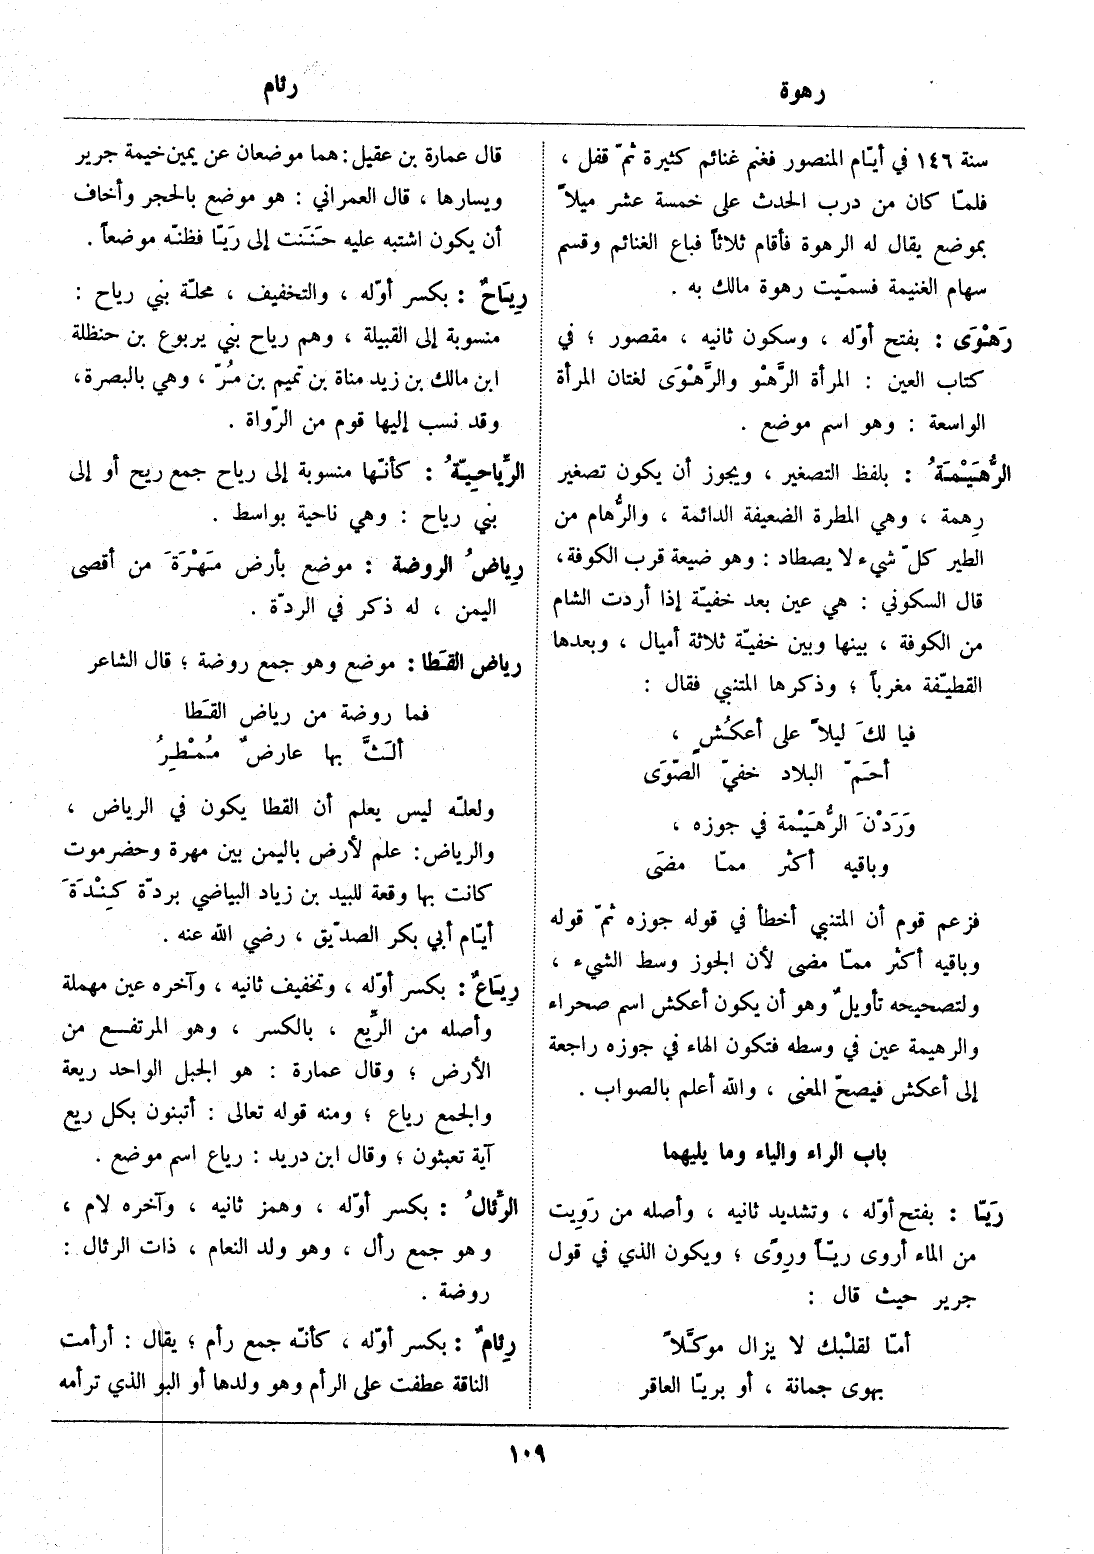 رهوة
رئام
سنة ١٤٦ في أيّام المنصور فغنم غنائم كثيرة ثمّ قفل ،
فلمّا كان من درب الحدث على خمسة عشر ميلاً
بموضع يقال له الرهوة فأقام ثلاثاً فباع الغنائم وقسم
سهام الغنيمة فسمّيت رهوة مالك به .
رَهْوَى : بفتح أوّله ، وسكون ثانيه ، مقصور ؛ في
كتاب العين : المرأة الرَّهْو والرَّهْوَى لغتان المرأة
الواسعة : وهو اسم موضع .
الرُّهَيْمَةُ : بلفظ التصغير ، ويجوز أن يكون تصغير
رِهمة ، وهي المطرة الضعيفة الدائمة ، والرُّهام من
الطير كلّ شيء لا يصطاد : وهو ضيعة قرب الكوفة ،
قال السكوني : هي عين بعد خفيّة إذا أردت الشام
من الكوفة ، بينها وبين خفيّة ثلاثة أميال ، وبعدها
القطيّفة مغرباً ؛ وذكرها المتنبي فقال :
فيا لكَ ليلاً على أعكُشٍ ،
أحَمّ البلاد خفيّ الصّوَى
وَرَدْنَ الرُّهَيْمة في جوزه ،
وباقيه أكثر ممّا مضَى
فزعم قوم أن المتنبي أخطأ في قوله جوزه ثمّ قوله
وباقيه أكثر ممّا مضى لأن الجوز وسط الشيء ،
ولتصحيحه تأويلٌ وهو أن يكون أعكش اسم صحراء
والرهيمة عين في وسطه فتكون الهاء في جوزه راجعة
إلى أعكش فيصحّ المعنى ، والله أعلم بالصواب .
باب الراء والياء وما يليهما
رَيّا : بفتح أوّله ، وتشديد ثانيه ، وأصله من رَوِيت
من الماء أروى ريّاً وروًى ؛ ويكون الذي في قول
جرير حيث قال :
أمّا لقلبك لا يزال موكَّلاً
بهوى جمانة ، أو بريّا العاقر
قال عمارة بن عقيل : هما موضعان عن يمين خيمة جرير
ويسارها ، قال العمراني : هو موضع بالحجر وأخاف
أن يكون اشتبه عليه حَنَنت إلى رَيّا فظنّه موضعاً .
رِيَاحٌ : بكسر أوّله ، والتخفيف ، محلّة بني رياح :
منسوبة إلى القبيلة ، وهم رياح بني يربوع بن حنظلة
ابن مالك بن زيد مناة بن تميم بن مُرّ ، وهي بالبصرة ،
وقد نسب إليها قوم من الرّواة .
الرِّياحيّةُ : كأنّها منسوبة إلى رياح جمع ريح أو إلى
بني رياح : وهي ناحية بواسط .
رِياضُ الروضة : موضع بأرض مَهْرَةَ من أقصى
اليمن ، له ذكر في الردّة .
رياض القَطا : موضع وهو جمع روضة ؛ قال الشاعر
فما روضة من رياض القَطا
ألَثَّ بها عارضٌ مُمْطِرُ
ولعلّه ليس يعلم أن القطا يكون في الرياض ،
والرياض : علم لأرض باليمن بين مهرة وحضرموت
كانت بها وقعة للبيد بن زياد البياضي بردّة كِنْدَةَ
أيّام أبي بكر الصدّيق ، رضي الله عنه .
رِيَاعٌ : بكسر أوّله ، وتخفيف ثانيه ، وآخره عين مهملة
وأصله من الرِّيع ، بالكسر ، وهو المرتفع من
الأرض ؛ وقال عمارة : هو الجبل الواحد ريعة
والجمع رياع ؛ ومنه قوله تعالى : أتبنون بكل ريع
آية تعبثون ؛ وقال ابن دريد : رياع اسم موضع .
الرِّئالُ : بكسر أوّله ، وهمز ثانيه ، وآخره لام ،
وهو جمع رأل ، وهو ولد النعام ، ذات الرئال :
روضة .
رِئامٌ : بكسر أوّله ، كأنّه جمع رأم ؛ يقال : أرأمت
الناقة عطفت على الرأم وهو ولدها أو البو الذي ترأمه
١٠٩